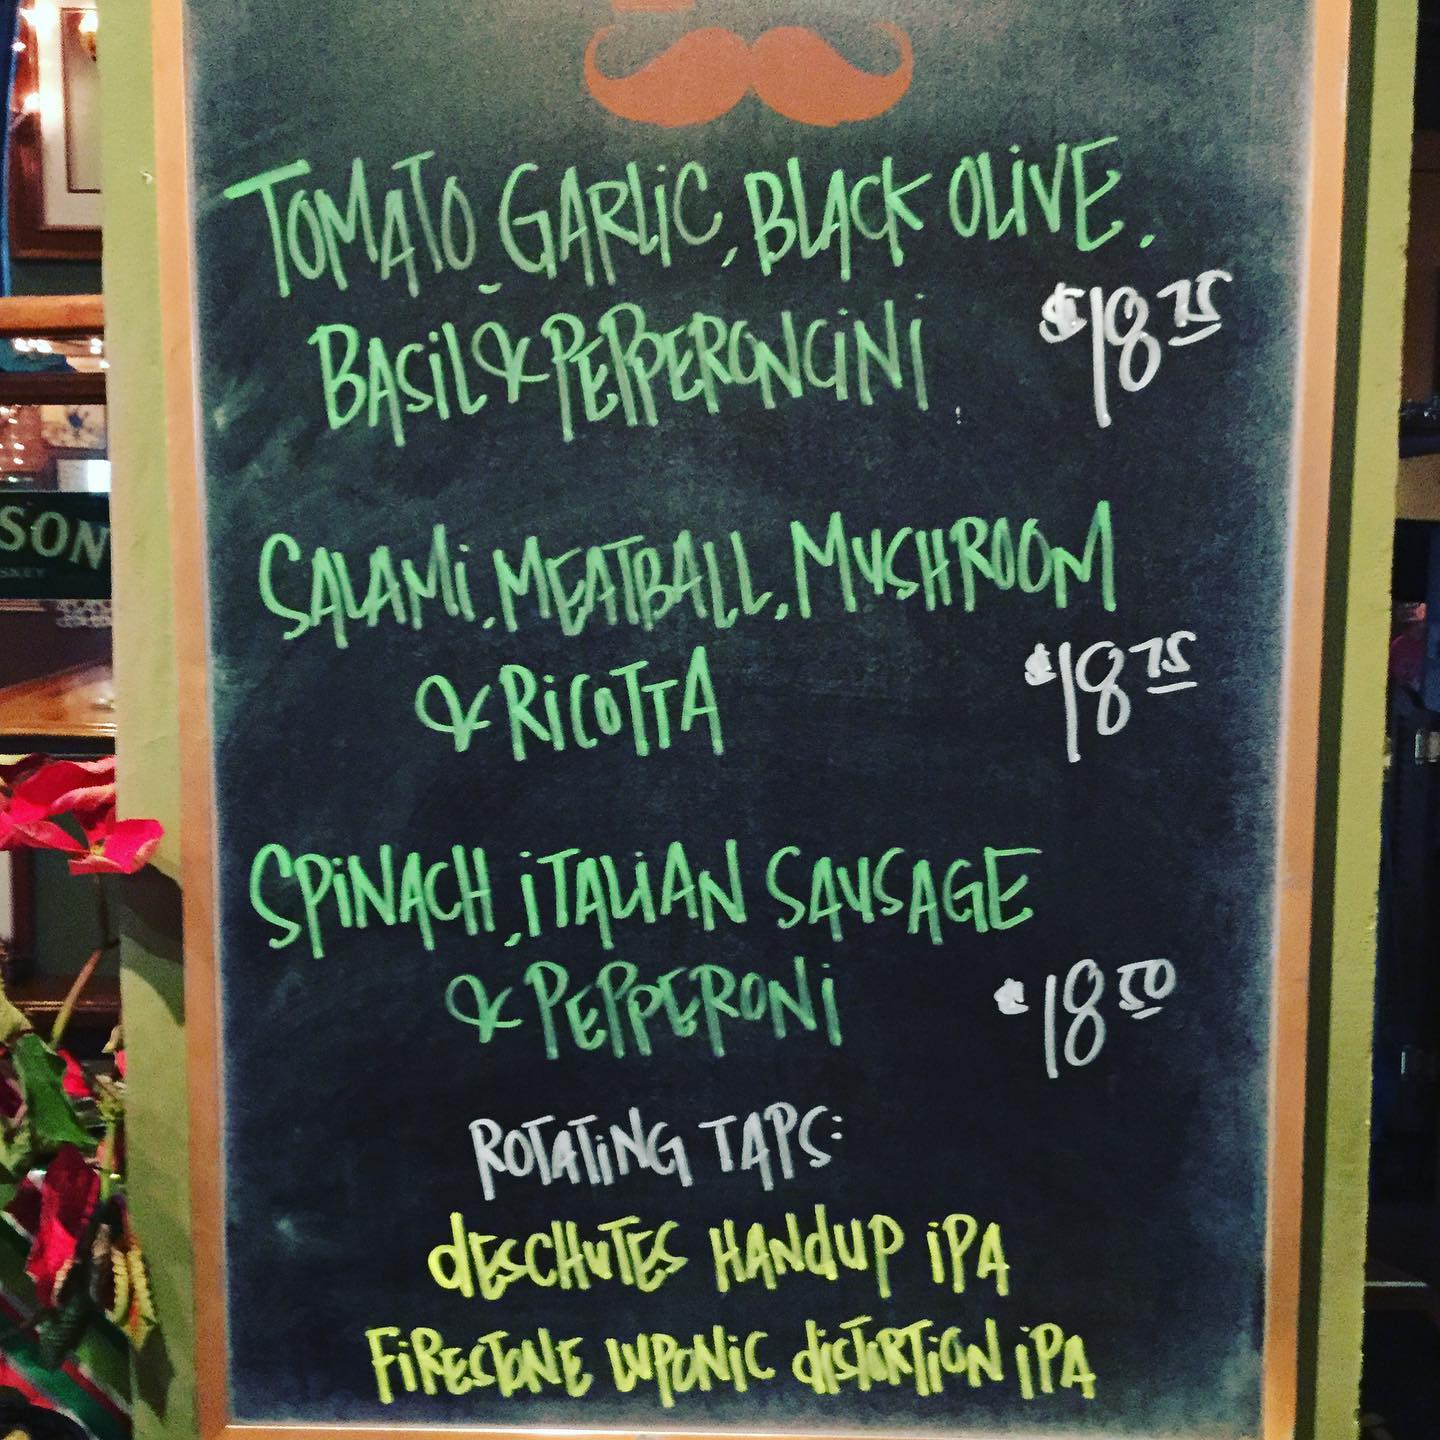 TOMATO, GARLIC, BLACK OLIVE,
BASIL & PEPPERONCINI $18 75
SALAMI, MEATBALL, MUSHROOM
& RICOTTA $18 75
SPINACH, ITALIAN SAUSAGE
& PEPPERONI $18 50
ROTATING TAPS:
DESCHUTES HANDUP IPA
FIRESTONE LUPONIC DISTORTION IPA
SON
SKEY